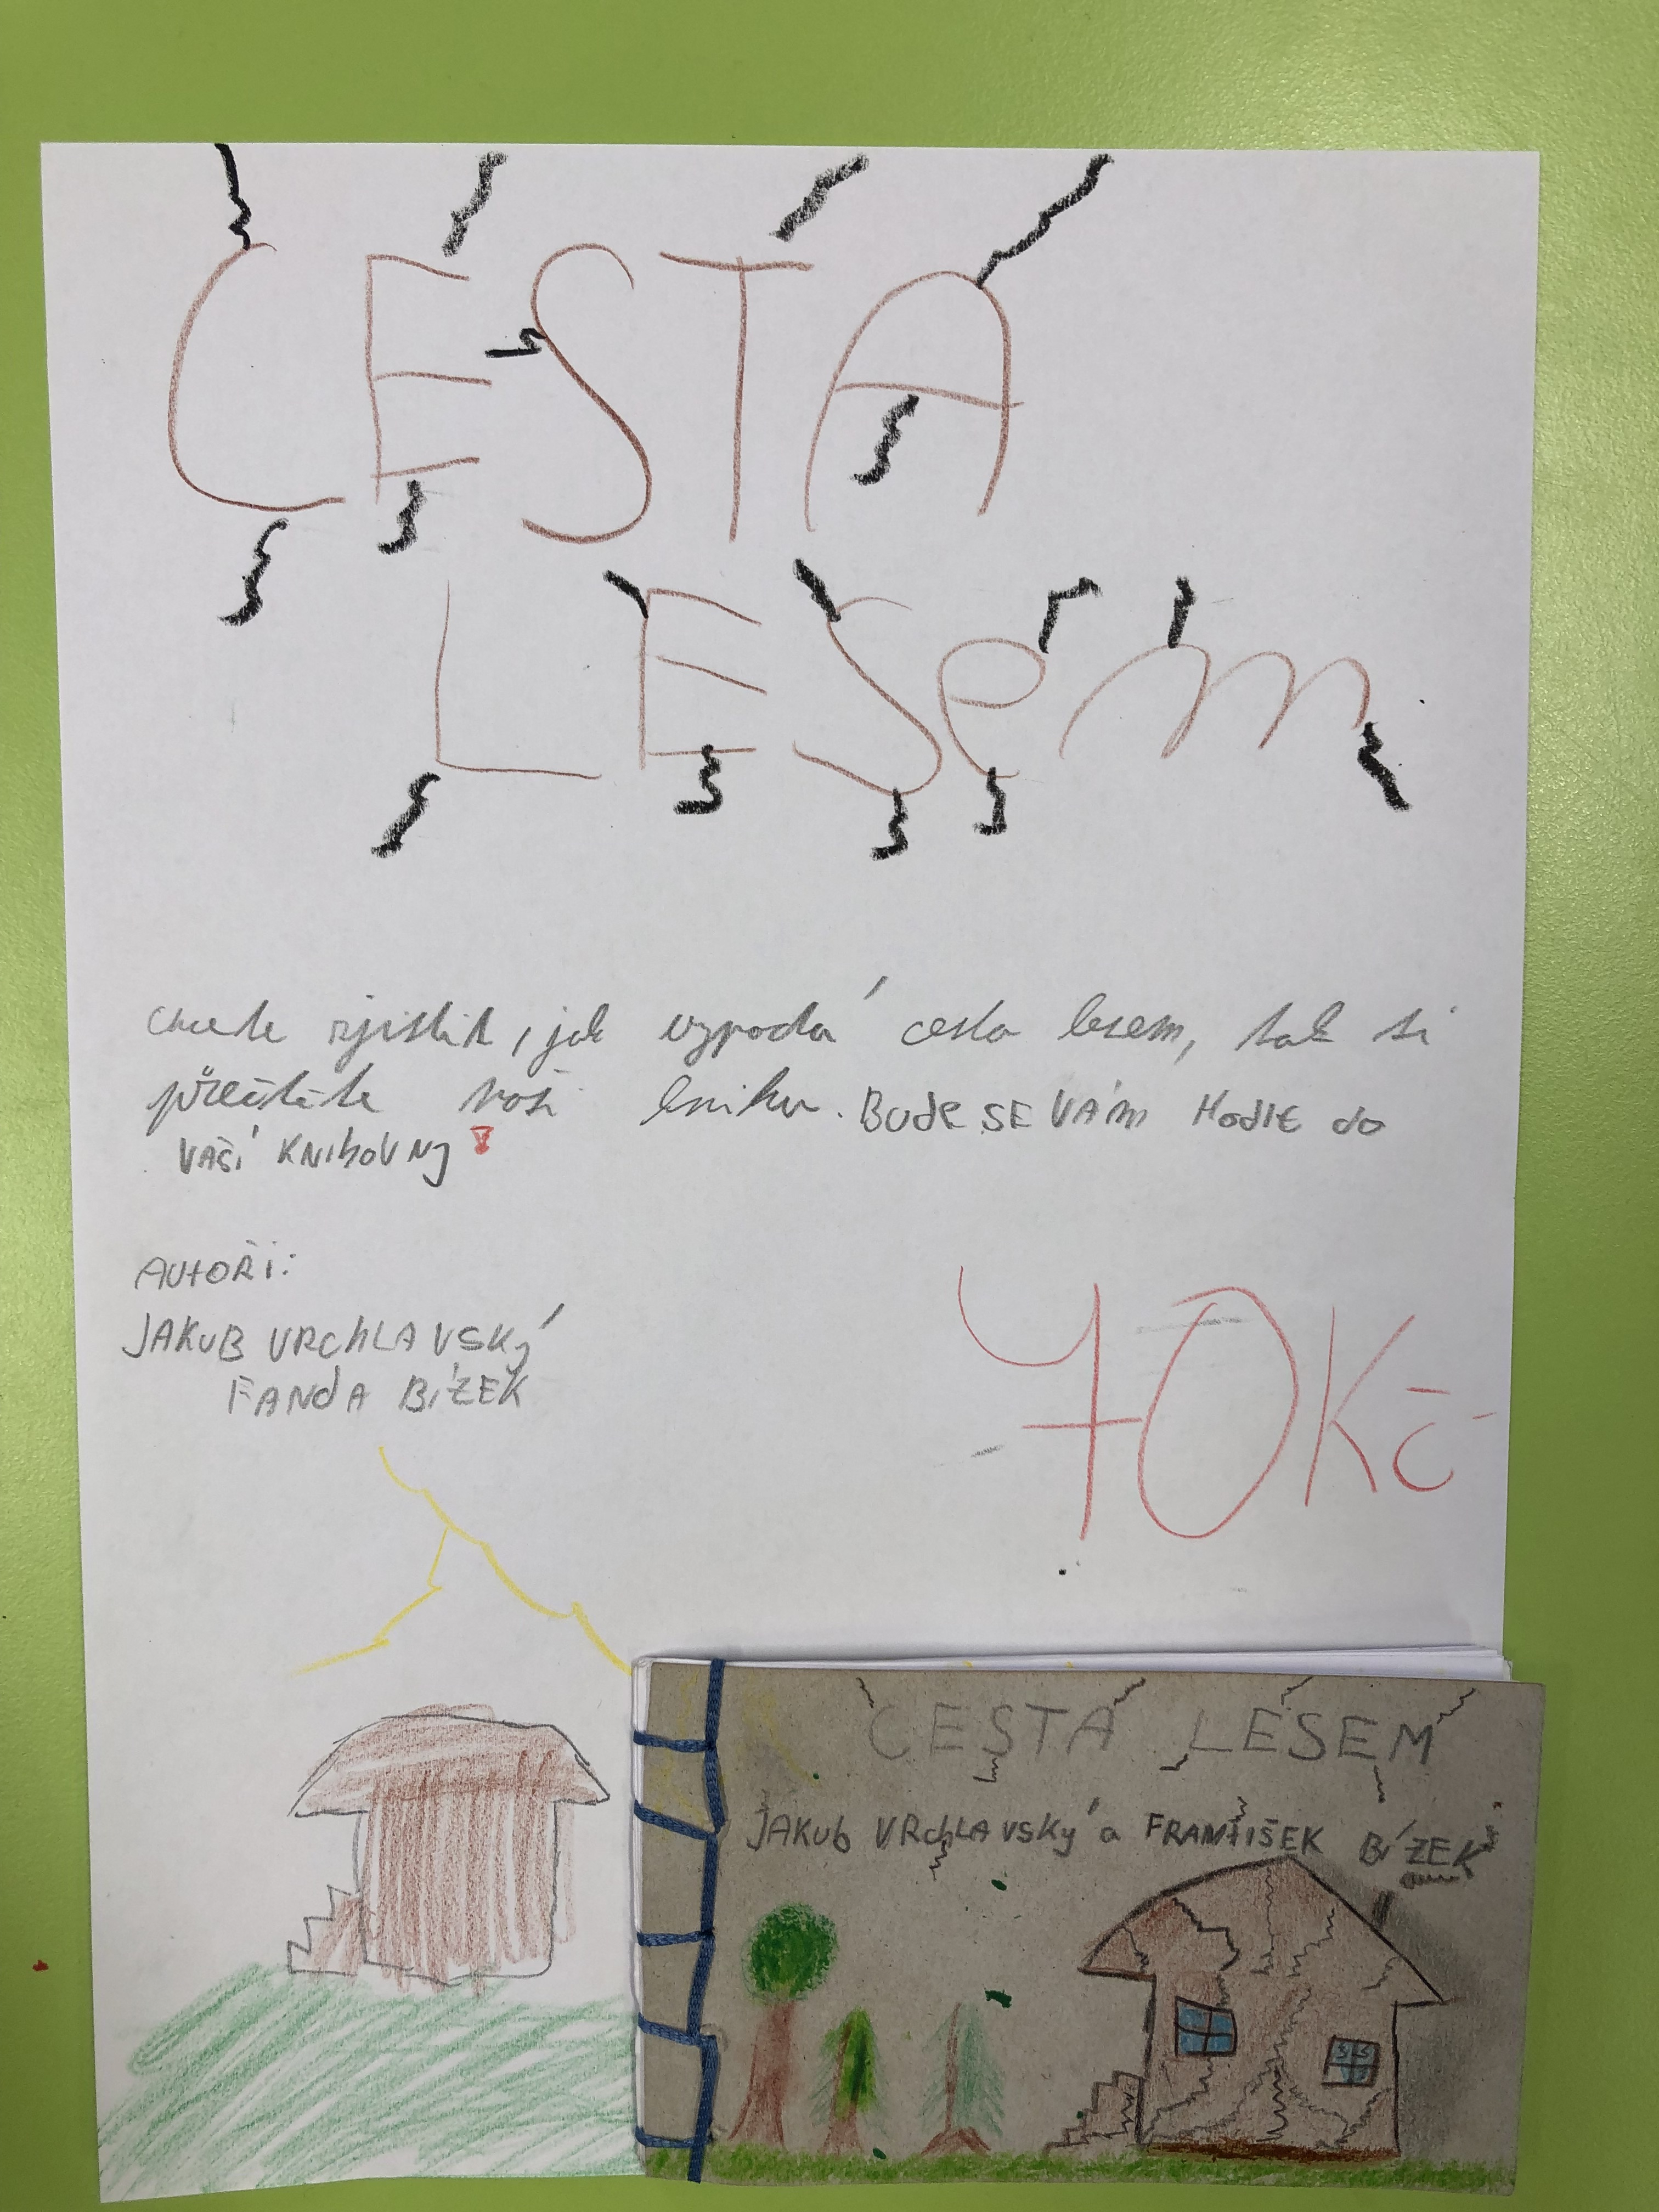 CESTA
LESem
chcete zjistit, jak vypadá cesta lesem, tak si
přečtěte naši knihu. BUdE SE VÁM HodIt do
VAŠÍ KNIhOVNy!
AUtOŘi:
JAKUB VRChLAVSKý
FANdA BÍZEK
70Kč-
CESTA LESEM
JAKUb VRchLAVSKý a FRANtIŠEK BÍZEK